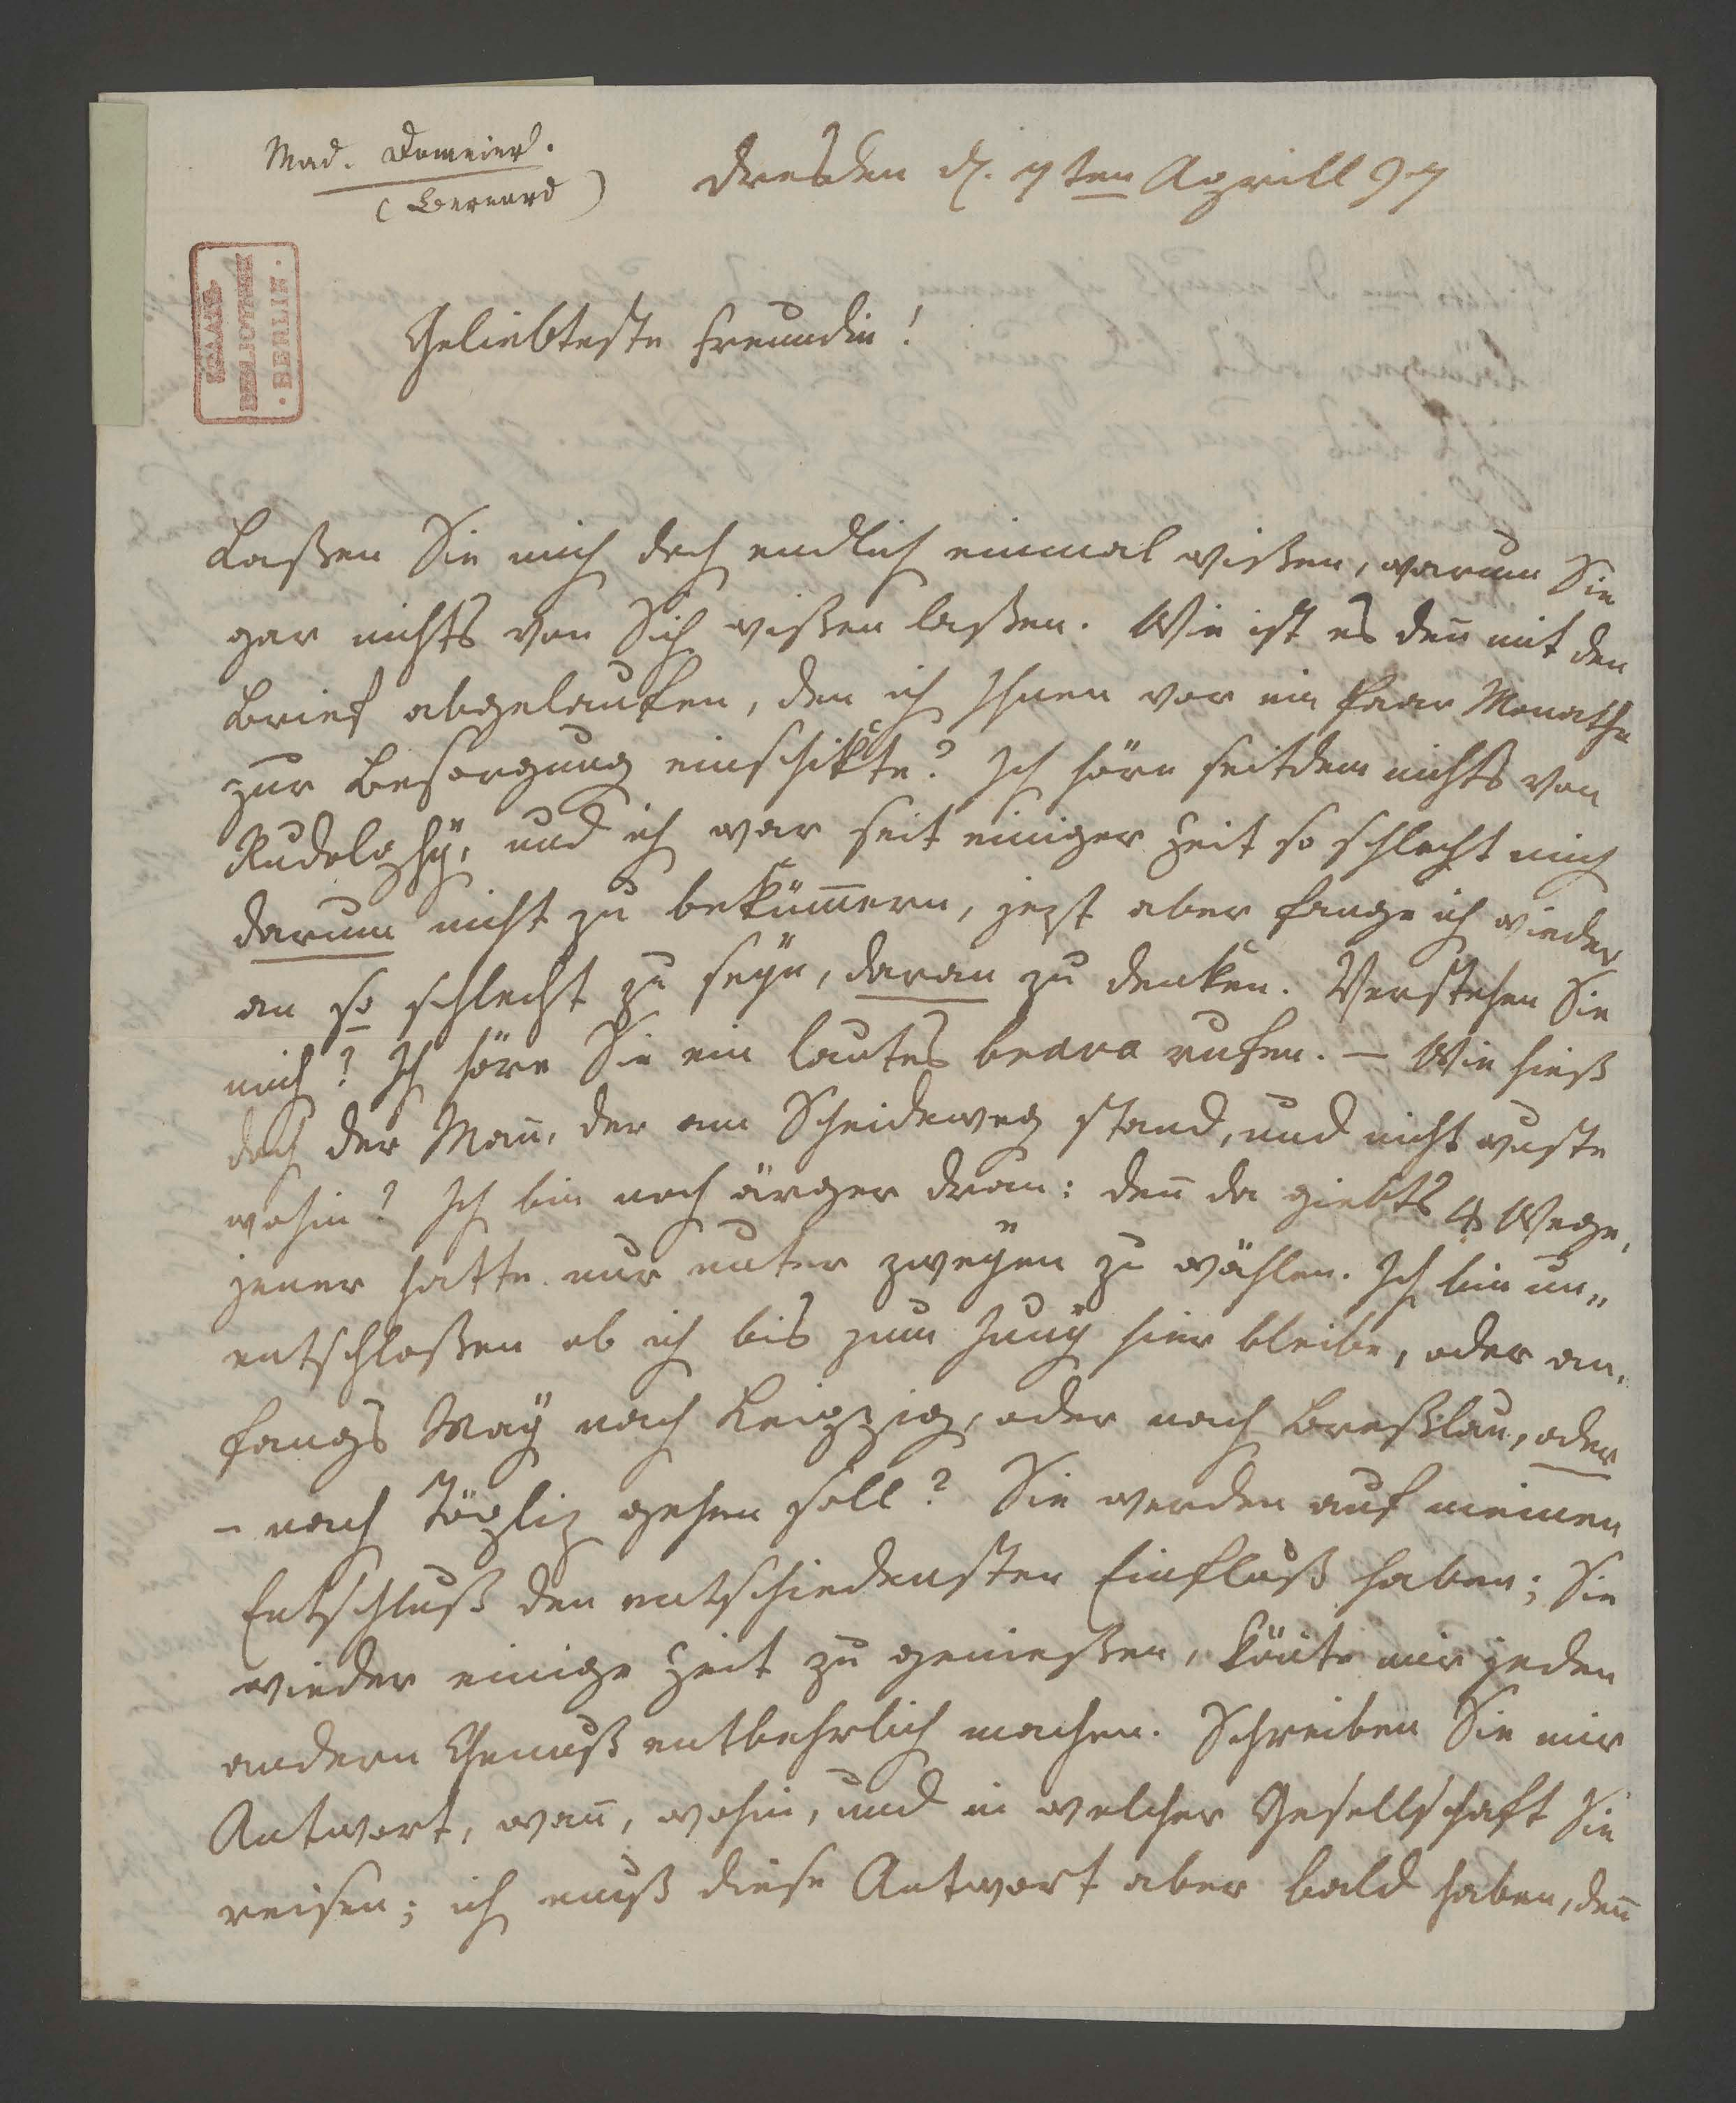 Mad. Domeier.
(Bernard)
Dresden d. 7ten Aprill 97
STAATS-
BIBLIOTHEK
· BERLIN ·
Geliebteste Freundin!
Laßen Sie mich doch endlich einmal wißen, warum Sie
gar nichts von Sich wißen laßen. Wie ist es deñ mit den
Brief abgelaufen, den ich Ihnen vor ein Paar Monathe
zur Besorgung einschikte? Ich höre seitdem nichts von
Rudolphÿ, und ich war seit einiger Zeit so schlecht mich
darum nicht zu bekümern, jezt aber fange ich wieder
an so schlecht zu seÿn, daran zu denken. Verstehen Sie
mich? Ich höre Sie ein lautes brava rufen. – Wie hieß
doch der Mañ, der am Scheideweg stand, und nicht wuste
wohin? Ich bin noch ärger dran: deñ da giebts 4 Wege,
jener hatte nur unter zweÿen zu wählen. Ich bin un„
entschloßen ob ich bis zum Junÿ hier bleibe, oder an„
fangs Maÿ nach Leipzig, oder nach Breßlau, oder
– nach Töpliz gehen soll? Sie werden auf meinen
Entschluß den entschiedensten Einfluß haben; Sie
wieder einige Zeit zu genießen, köñte mir jeden
andern Genuß entbehrlich machen. Schreiben Sie mir
Antwort, wañ, wohin, und in welcher Gesellschaft Sie
reisen; ich muß diese Antwort aber bald haben, deñ